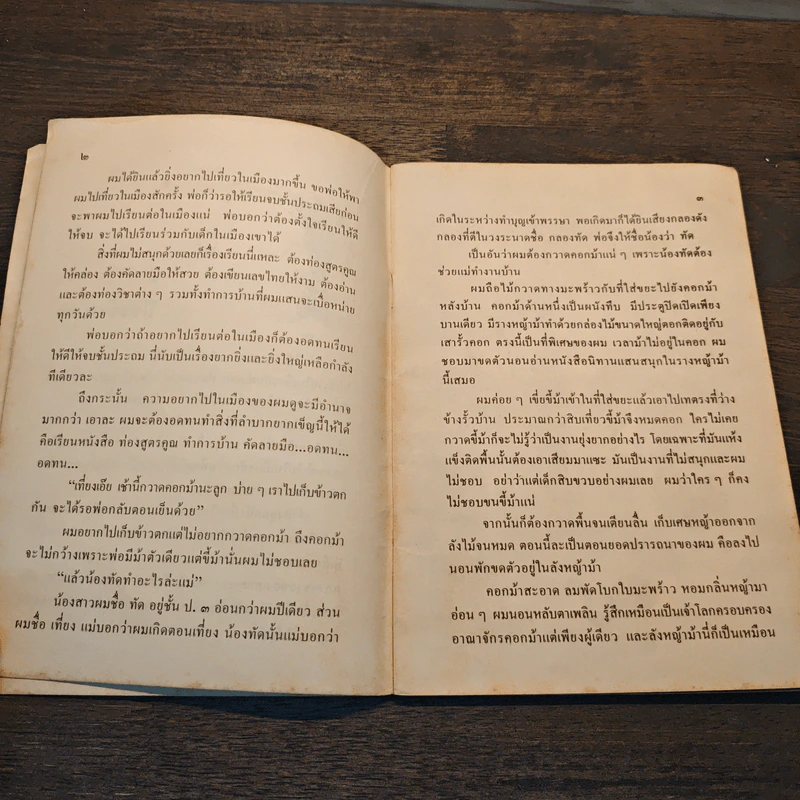 ๒
ผมได้ยินแล้วยิ่งอยากไปเที่ยวในเมืองมากขึ้น ขอพ่อให้พา
ผมไปเที่ยวในเมืองสักครั้ง พ่อก็ว่ารอให้เรียนจบชั้นประถมเสียก่อน
จะพาผมไปเรียนต่อในเมืองแน่ พ่อบอกว่าต้องตั้งใจเรียนให้ดี
ให้จบ จะได้ไปเรียนร่วมกับเด็กในเมืองเขาได้
สิ่งที่ผมไม่สนุกด้วยเลยก็เรื่องเรียนนี่แหละ ต้องท่องสูตรคูณ
ให้คล่อง ต้องคัดลายมือให้สวย ต้องเขียนเลขไทยให้งาม ต้องอ่าน
และต้องท่องวิชาต่าง ๆ รวมทั้งทำการบ้านที่ผมแสนจะเบื่อหน่าย
ทุกวันด้วย
พ่อบอกว่าถ้าอยากไปเรียนต่อในเมืองก็ต้องอดทนเรียน
ให้ดีให้จบชั้นประถม นี่นับเป็นเรื่องยากยิ่งและยิ่งใหญ่เหลือกำลัง
ทีเดียวละ
ถึงกระนั้น ความอยากไปในเมืองของผมดูจะมีอำนาจ
มากกว่า เอาละ ผมจะต้องอดทนทำสิ่งที่ลำบากยากเข็ญนี้ให้ได้
คือเรียนหนังสือ ท่องสูตรคูณ ทำการบ้าน คัดลายมือ...อดทน...
อดทน...
“เที่ยงเอ๊ย เช้านี้กวาดคอกม้านะลูก บ่าย ๆ เราไปเก็บข้าวตก
กัน จะได้รอพ่อกลับตอนเย็นด้วย”
ผมอยากไปเก็บข้าวตกแต่ไม่อยากกวาดคอกม้า ถึงคอกม้า
จะไม่กว้างเพราะพ่อมีม้าตัวเดียวแต่ขี้ม้านั่นผมไม่ชอบเลย
“แล้วน้องทัดทำอะไรล่ะแม่”
น้องสาวผมชื่อ ทัด อยู่ชั้น ป. ๓ อ่อนกว่าผมปีเดียว ส่วน
ผมชื่อ เที่ยง แม่บอกว่าผมเกิดตอนเที่ยง น้องทัดนั้นแม่บอกว่า
๓
เกิดในระหว่างทำบุญเข้าพรรษา พอเกิดมาก็ได้ยินเสียงกลองดัง
กลองที่ตีในวงระนาดชื่อ กลองทัด พ่อจึงให้ชื่อน้องว่า ทัด
เป็นอันว่าผมต้องกวาดคอกม้าแน่ ๆ เพราะน้องทัดต้อง
ช่วยแม่ทำงานบ้าน
ผมถือไม้กวาดทางมะพร้าวกับที่ใส่ขยะไปยังคอกม้า
หลังบ้าน คอกม้าด้านหนึ่งเป็นผนังทึบ มีประตูปิดเปิดเพียง
บานเดียว มีรางหญ้าม้าทำด้วยกล่องไม้ขนาดใหญ่ตอกติดอยู่กับ
เสารั้วคอก ตรงนี้เป็นที่พิเศษของผม เวลาม้าไม่อยู่ในคอก ผม
ชอบมาขดตัวนอนอ่านหนังสือนิทานแสนสนุกในรางหญ้าม้า
นี้เสมอ
ผมค่อย ๆ เขี่ยขี้ม้าเข้าในที่ใส่ขยะแล้วเอาไปเทตรงที่ว่าง
ข้างรั้วบ้าน ประมาณกว่าสิบเที่ยวขี้ม้าจึงหมดคอก ใครไม่เคย
กวาดขี้ม้าก็จะไม่รู้ว่าเป็นงานยุ่งยากอย่างไร โดยเฉพาะที่มันแห้ง
แข็งติดพื้นนั้นต้องเอาเสียมมาแซะ มันเป็นงานที่ไม่สนุกและผม
ไม่ชอบ อย่าว่าแต่เด็กสิบขวบอย่างผมเลย ผมว่าใคร ๆ ก็คง
ไม่ชอบขนขี้ม้าแน่
จากนั้นก็ต้องกวาดพื้นจนเตียนลื่น เก็บเศษหญ้าออกจาก
ลังไม้จนหมด ตอนนี้ละเป็นตอนยอดปรารถนาของผม คือลงไป
นอนพักขดตัวอยู่ในลังหญ้าม้า
คอกม้าสะอาด ลมพัดโบกใบมะพร้าว หอมกลิ่นหญ้ามา
อ่อน ๆ ผมนอนหลับตาเพลิน รู้สึกเหมือนเป็นเจ้าโลกครอบครอง
อาณาจักรคอกม้าแต่เพียงผู้เดียว และลังหญ้าม้านี่ก็เป็นเหมือน